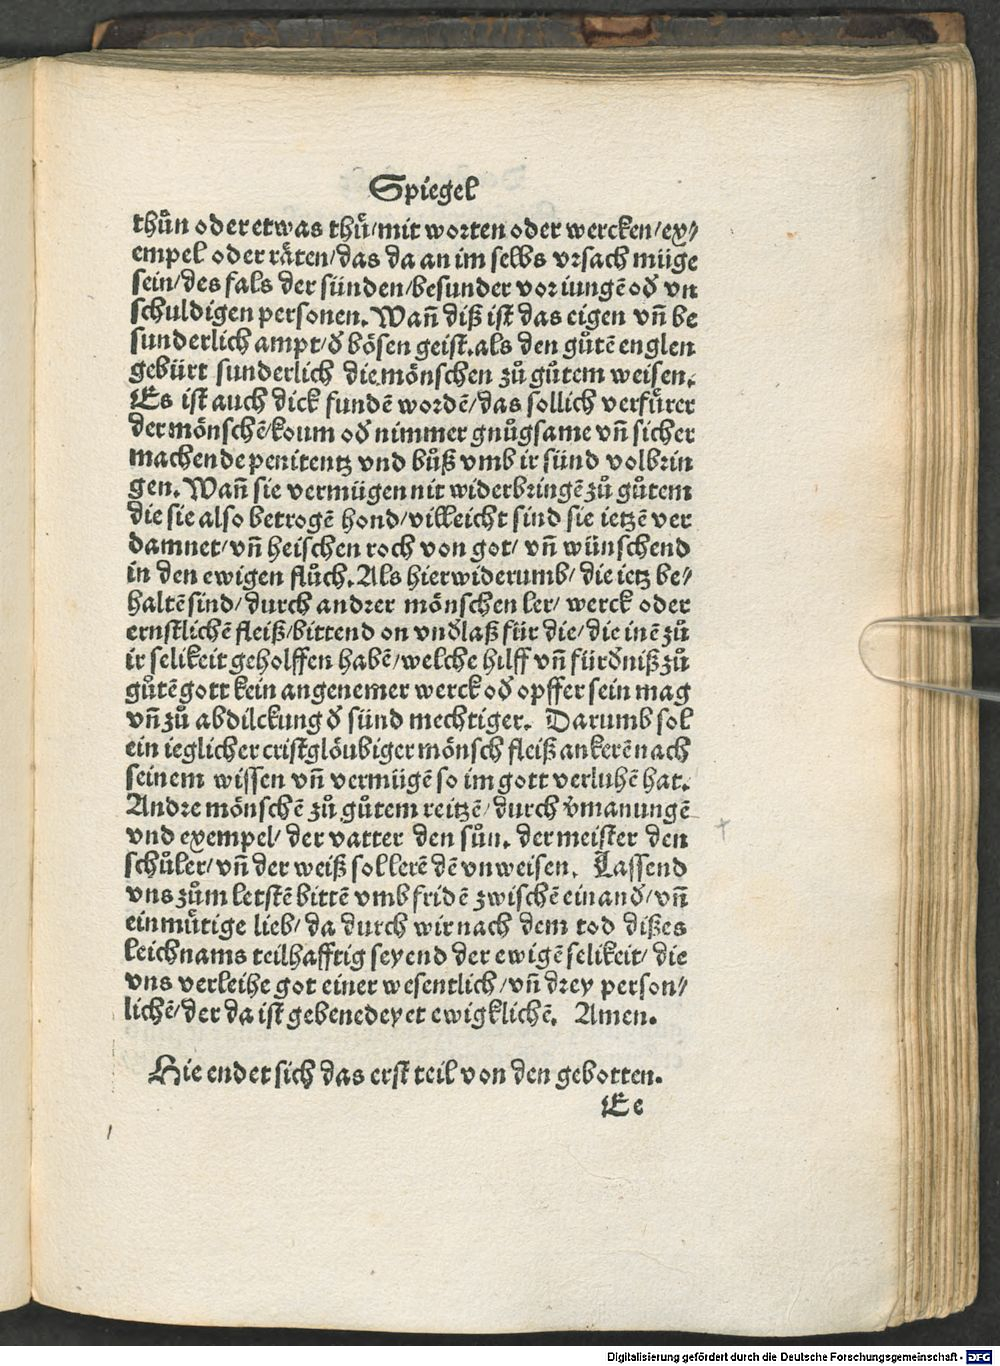 Spiegel
thůn oder etwas thů/mit worten oder wercken/ex⸗
empel oder räten/das da an im selbs vrsach müge
sein/des fals der sünden/besunder vor iungē oď vn
schuldigen personen. Wañ diß ist das eigen vñ be
sunderlich ampt/ď bösen geist.als den gůtē englen
gebürt sunderlich die mönschen zů gůtem weisen.
Es ist auch dick fundē wordē/das sollich verfůrer
der mönschē/koum oď nimmer gnůgsame vñ sicher
machende penitentz vnd bůß vmb ir sünd volbrin
gen. Wañ sie vermügen nit widerbringē zů gůtem
die sie also betrogē hond/villeicht sind sie ietzē ver
damnet/vñ heischen roch von got/vñ wünschend
in den ewigen flůch. Als hierwiderumb/die ietz be⸗
haltē sind/durch andrer mönschen ler/werck oder
ernstlichē fleiß/bittend on vnďlaß für die/die inē zů
ir selikeit geholffen habē/welche hilff vñ fürďniß zů
gůtē gott kein angenemer werck oď opffer sein mag
vñ zů abdilckung ď sünd mechtiger. Darumb sol
ein ieglicher cristglöubiger mönsch fleiß ankerē nach
seinem wissen vñ vermügē so im gott verluhē hat.
Andre mönschē zů gůtem reitzē/durch v̾manungē
vnd exempel/der vatter den sůn. der meister den
schůler/vñ der weiß sol lerē dē vnweisen. Lassend
vns zům letstē bittē vmb fridē zwischē einanď/vñ
einmůtige lieb/da durch wir nach dem tod dißes
leichnams teilhafftig seyend der ewigē selikeit/die
vns verleihe got einer wesentlich/vñ drey person⸗
lichē/der da ist gebenedeyet ewigklichē. Amen.
Hie endet sich das erst teil von den gebotten.
Ee
Digitalisierung gefördert durch die Deutsche Forschungsgemeinschaft - DFG